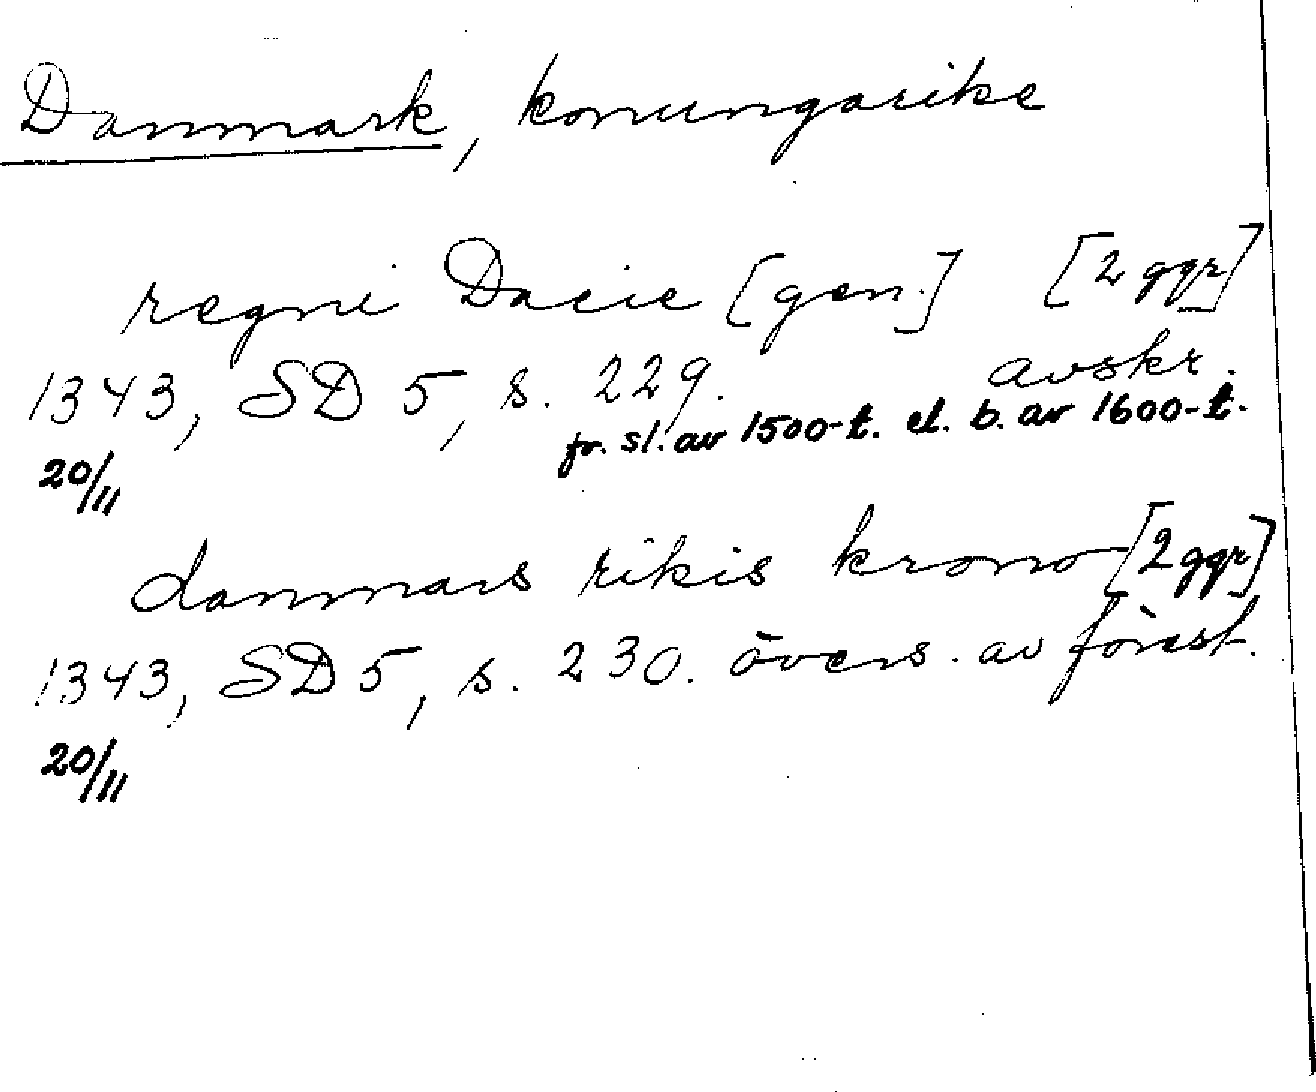 Danmark, konungarike
regni Dacie [gen.] [2 ggr]
1343, SD 5, s. 229. avskr.
fr. sl. av 1500-t. el. b. av 1600-t.
20/11
danmars rikis krono [2 ggr]
1343, SD 5, s. 230. övers. av förest.
20/11